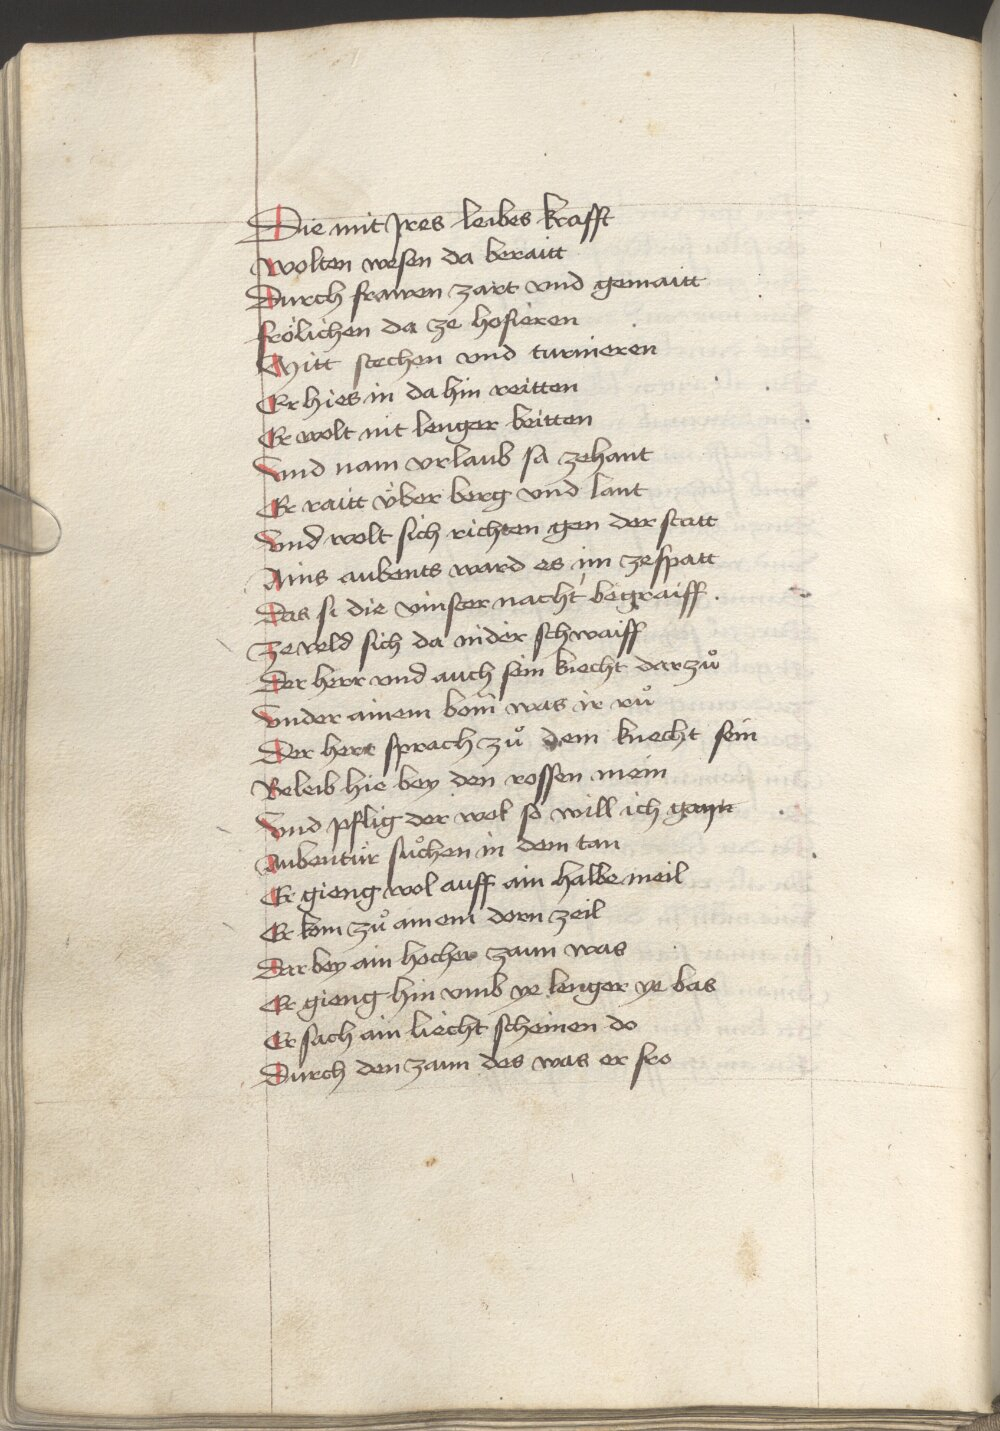 Die mit Jres leibes krafft
Wolten wesen da beraitt
Durch frawen zart vnd gemaitt
frölichen da ze hofieren
Mitt stechen vnd turnieren
Er hies in da hin reitten
Er wolt nit lenger beitten
Vnd nam vrlaub sa zehant
Er raitt über berg vnd lant
Vnd wolt sich richten gen der statt
Ains aubents ward es im ze spatt
Das si die vinster nacht begraiff.
Ze veld sich da nider schwaiff
Der herr vnd auch sein knecht dar zuͦ
Vnder ainem bom̄ was ir ruͦ
Der herr sprach zuͦ dem knecht sein
Beleib hie bey den rossen mein
Vnd pflig der wol so will ich gan
Aubentür suͦchen in dem tan
Er gieng wol auff ain halbe meil
Er kom zuͦ ainem dorn zeil
Dar bey ain hocher zaun was
Er gieng hin vmb ye lenger ye bas
Er sach ain liecht scheinen do
Durch den zaun des was er fro